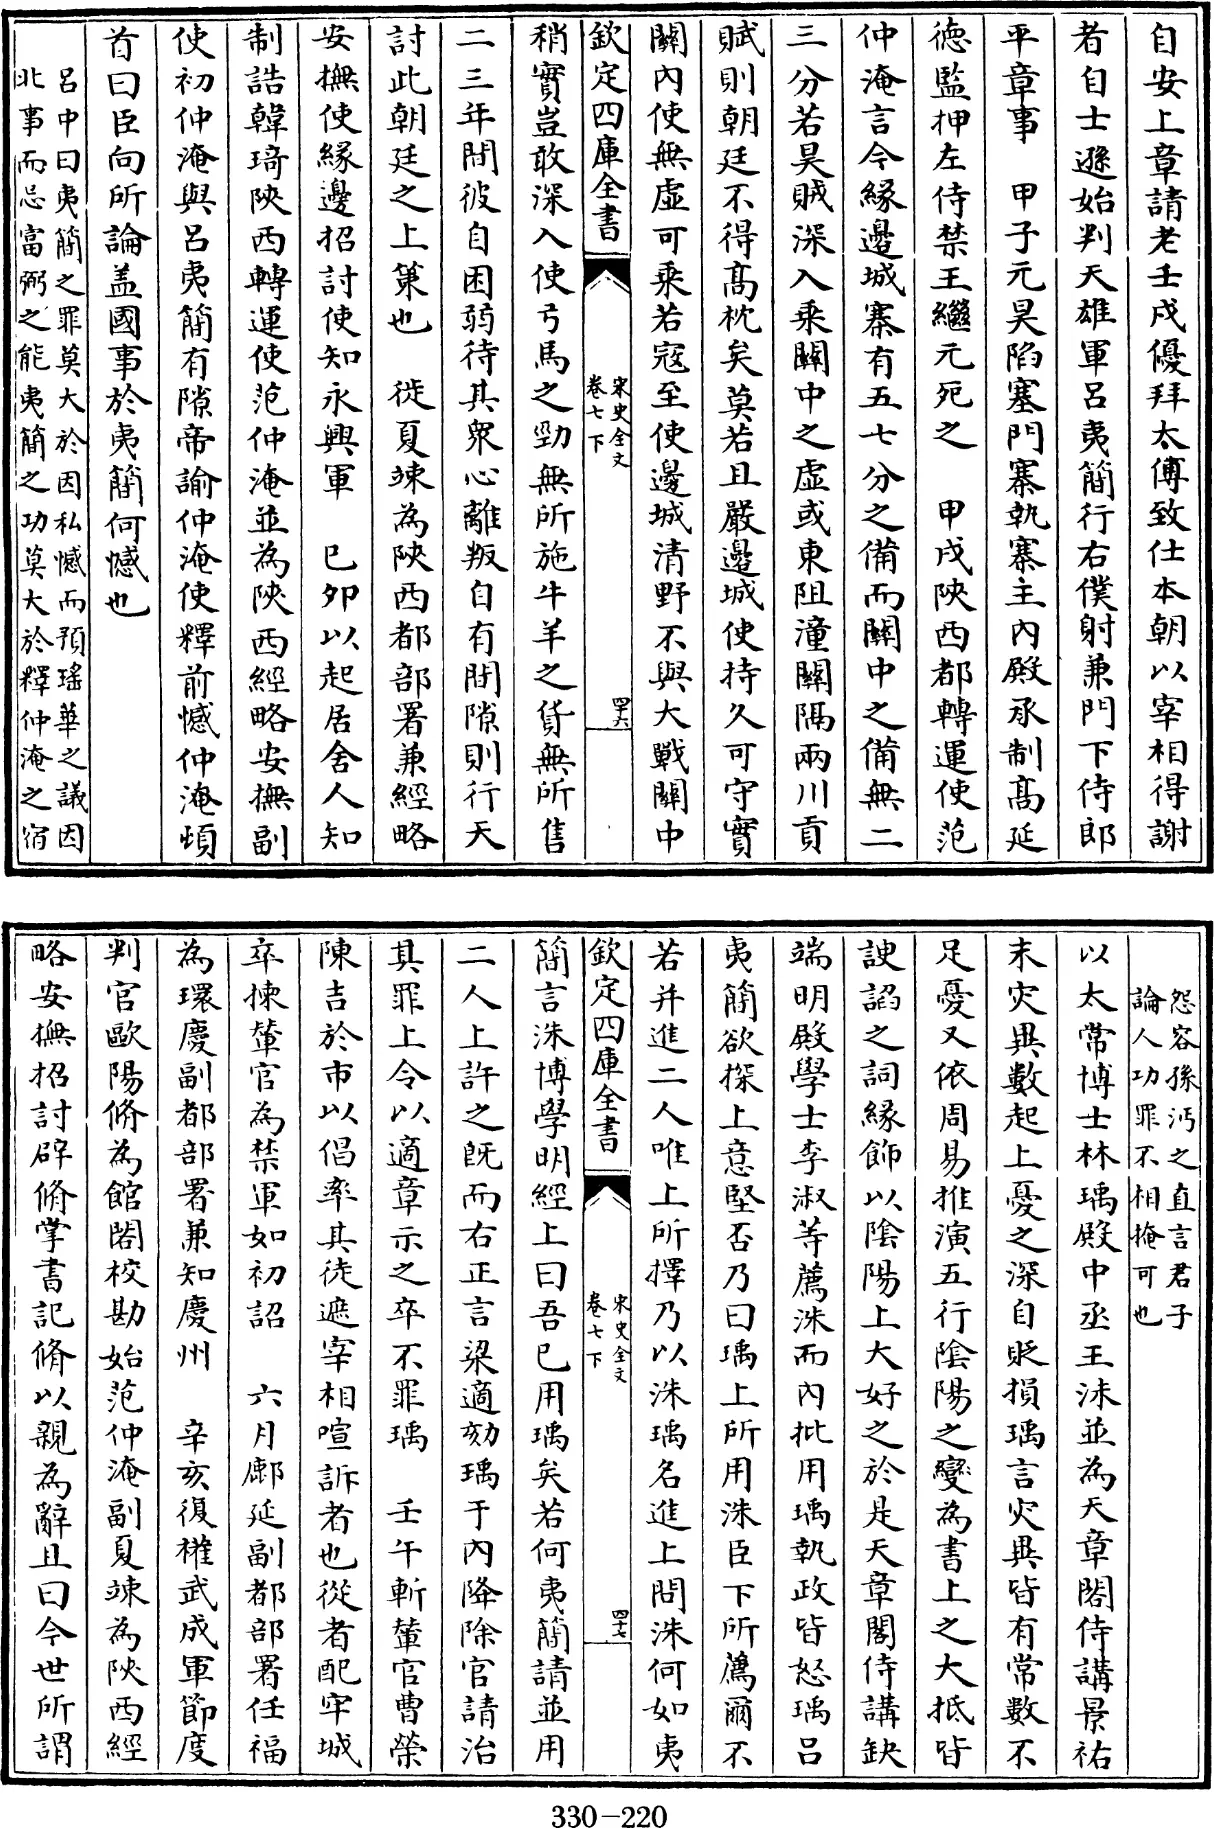 自安上章請老壬戌優拜太傅致仕本朝以宰相得謝
者自士遜始判天雄軍呂夷簡行右僕射兼門下侍郎
平章事　甲子元昊陷塞門寨執寨主內殿承制高延
德監押左侍禁王繼元死之　甲戌陜西都轉運使范
仲淹言今緣邊城寨有五七分之備而關中之備無二
三分若昊賊深入乘關中之虛或東阻潼關隔兩川貢
賦則朝廷不得高枕矣莫若且嚴邊城使持久可守實
關內使無虛可乘若寇至使邊城清野不與大戰關中
欽定四庫全書
宋史全文
卷七下
四十六
稍實豈敢深入使弓馬之勁無所施牛羊之貨無所售
二三年間彼自困弱待其衆心離叛自有間隙則行天
討此朝廷之上策也　徙夏竦為陜西都部署兼經略
安撫使緣邊招討使知永興軍　已卯以起居舍人知
制誥韓琦陜西轉運使范仲淹並為陜西經略安撫副
使初仲淹與呂夷簡有隙帝諭仲淹使釋前憾仲淹頓
首曰臣向所論盖國事於夷簡何憾也
呂中曰夷簡之罪莫大於因私憾而預瑤華之議因
此事而忌富弼之能夷簡之功莫大於釋仲淹之宿
怨容孫沔之直言君子
論人功罪不相掩可也
以太常博士林瑀殿中丞王洙並為天章閣侍講景祐
末灾異數起上憂之深自貶損瑀言灾異皆有常數不
足憂又依周易推演五行陰陽之變為書上之大抵皆
諛謟之詞緣飾以陰陽上大好之於是天章閣侍講缺
端明殿學士李淑等薦洙而內批用瑀執政皆怒瑀呂
夷簡欲探上意堅否乃曰瑀上所用洙臣下所薦爾不
若并進二人唯上所擇乃以洙瑀名進上問洙何如夷
欽定四庫全書
宋史全文
卷七下
四十七
簡言洙博學明經上曰吾已用瑀矣若何夷簡請並用
二人上許之旣而右正言梁適劾瑀于內降除官請治
其罪上令以適章示之卒不罪瑀　壬午斬輦官曹榮
陳吉於市以倡率其徒遮宰相喧訴者也從者配牢城
卒揀輦官為禁軍如初詔　六月鄜延副都部署任福
為環慶副都部署兼知慶州　辛亥復權武成軍節度
判官歐陽脩為館閣校勘始范仲淹副夏竦為陜西經
略安撫招討辟脩掌書記脩以親為辭且曰今世所謂
330-220